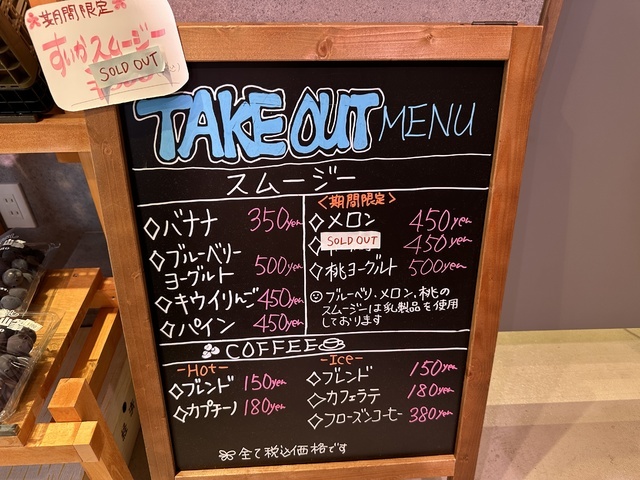 期間限定
すいかスムージー
SOLD OUT
TAKE OUT MENU
スムージー
◇バナナ 350yen
◇ブルーベリー
ヨーグルト 500yen
◇キウイりんご 450yen
◇パイン 450yen
<期間限定>
◇メロン 450yen
◇ SOLD OUT 450yen
◇桃ヨーグルト 500yen
ブルーベリー、メロン、桃の
スムージーは乳製品を使用
しております
COFFEE
-Hot-
◇ブレンド 150yen
◇カプチーノ 180yen
-Ice-
◇ブレンド 150yen
◇カフェラテ 180yen
◇フローズンコーヒー 380yen
全て税込価格です